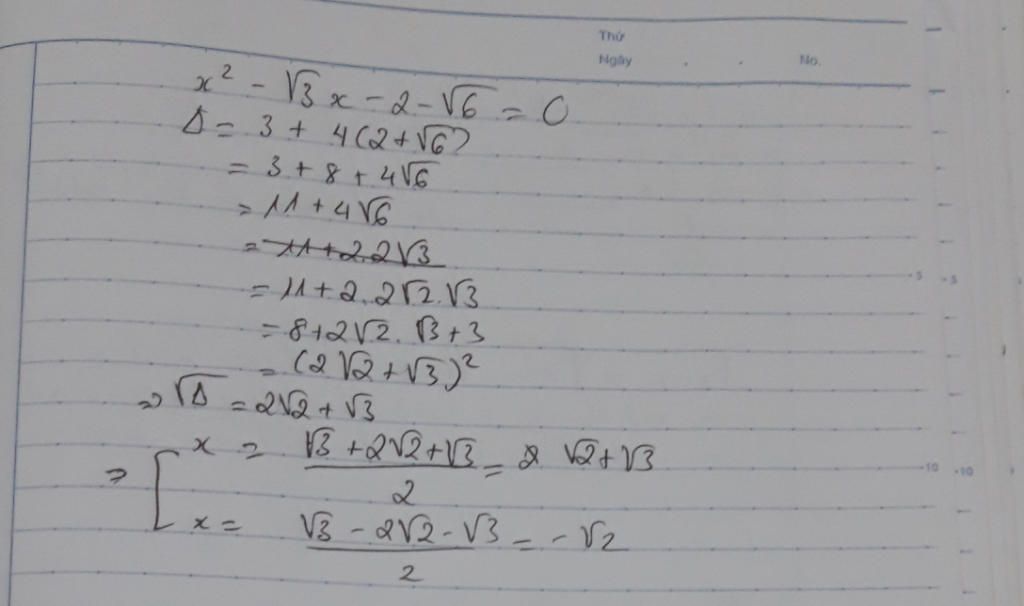 Thứ
Ngày . . No.
x² - √3 x - 2 - √6 = 0
Δ = 3 + 4(2+√6)
= 3 + 8 + 4√6
= 11 + 4√6
= 11+2.2√3
= 11 + 2.2√2.√3
= 8+2√2.√3+3
= (2√2+√3)²
=> √Δ = 2√2 + √3
=> [ x = (√3 + 2√2 + √3)/2 = √2+√3
x = (√3 - 2√2 - √3)/2 = -√2
5 5
10 10